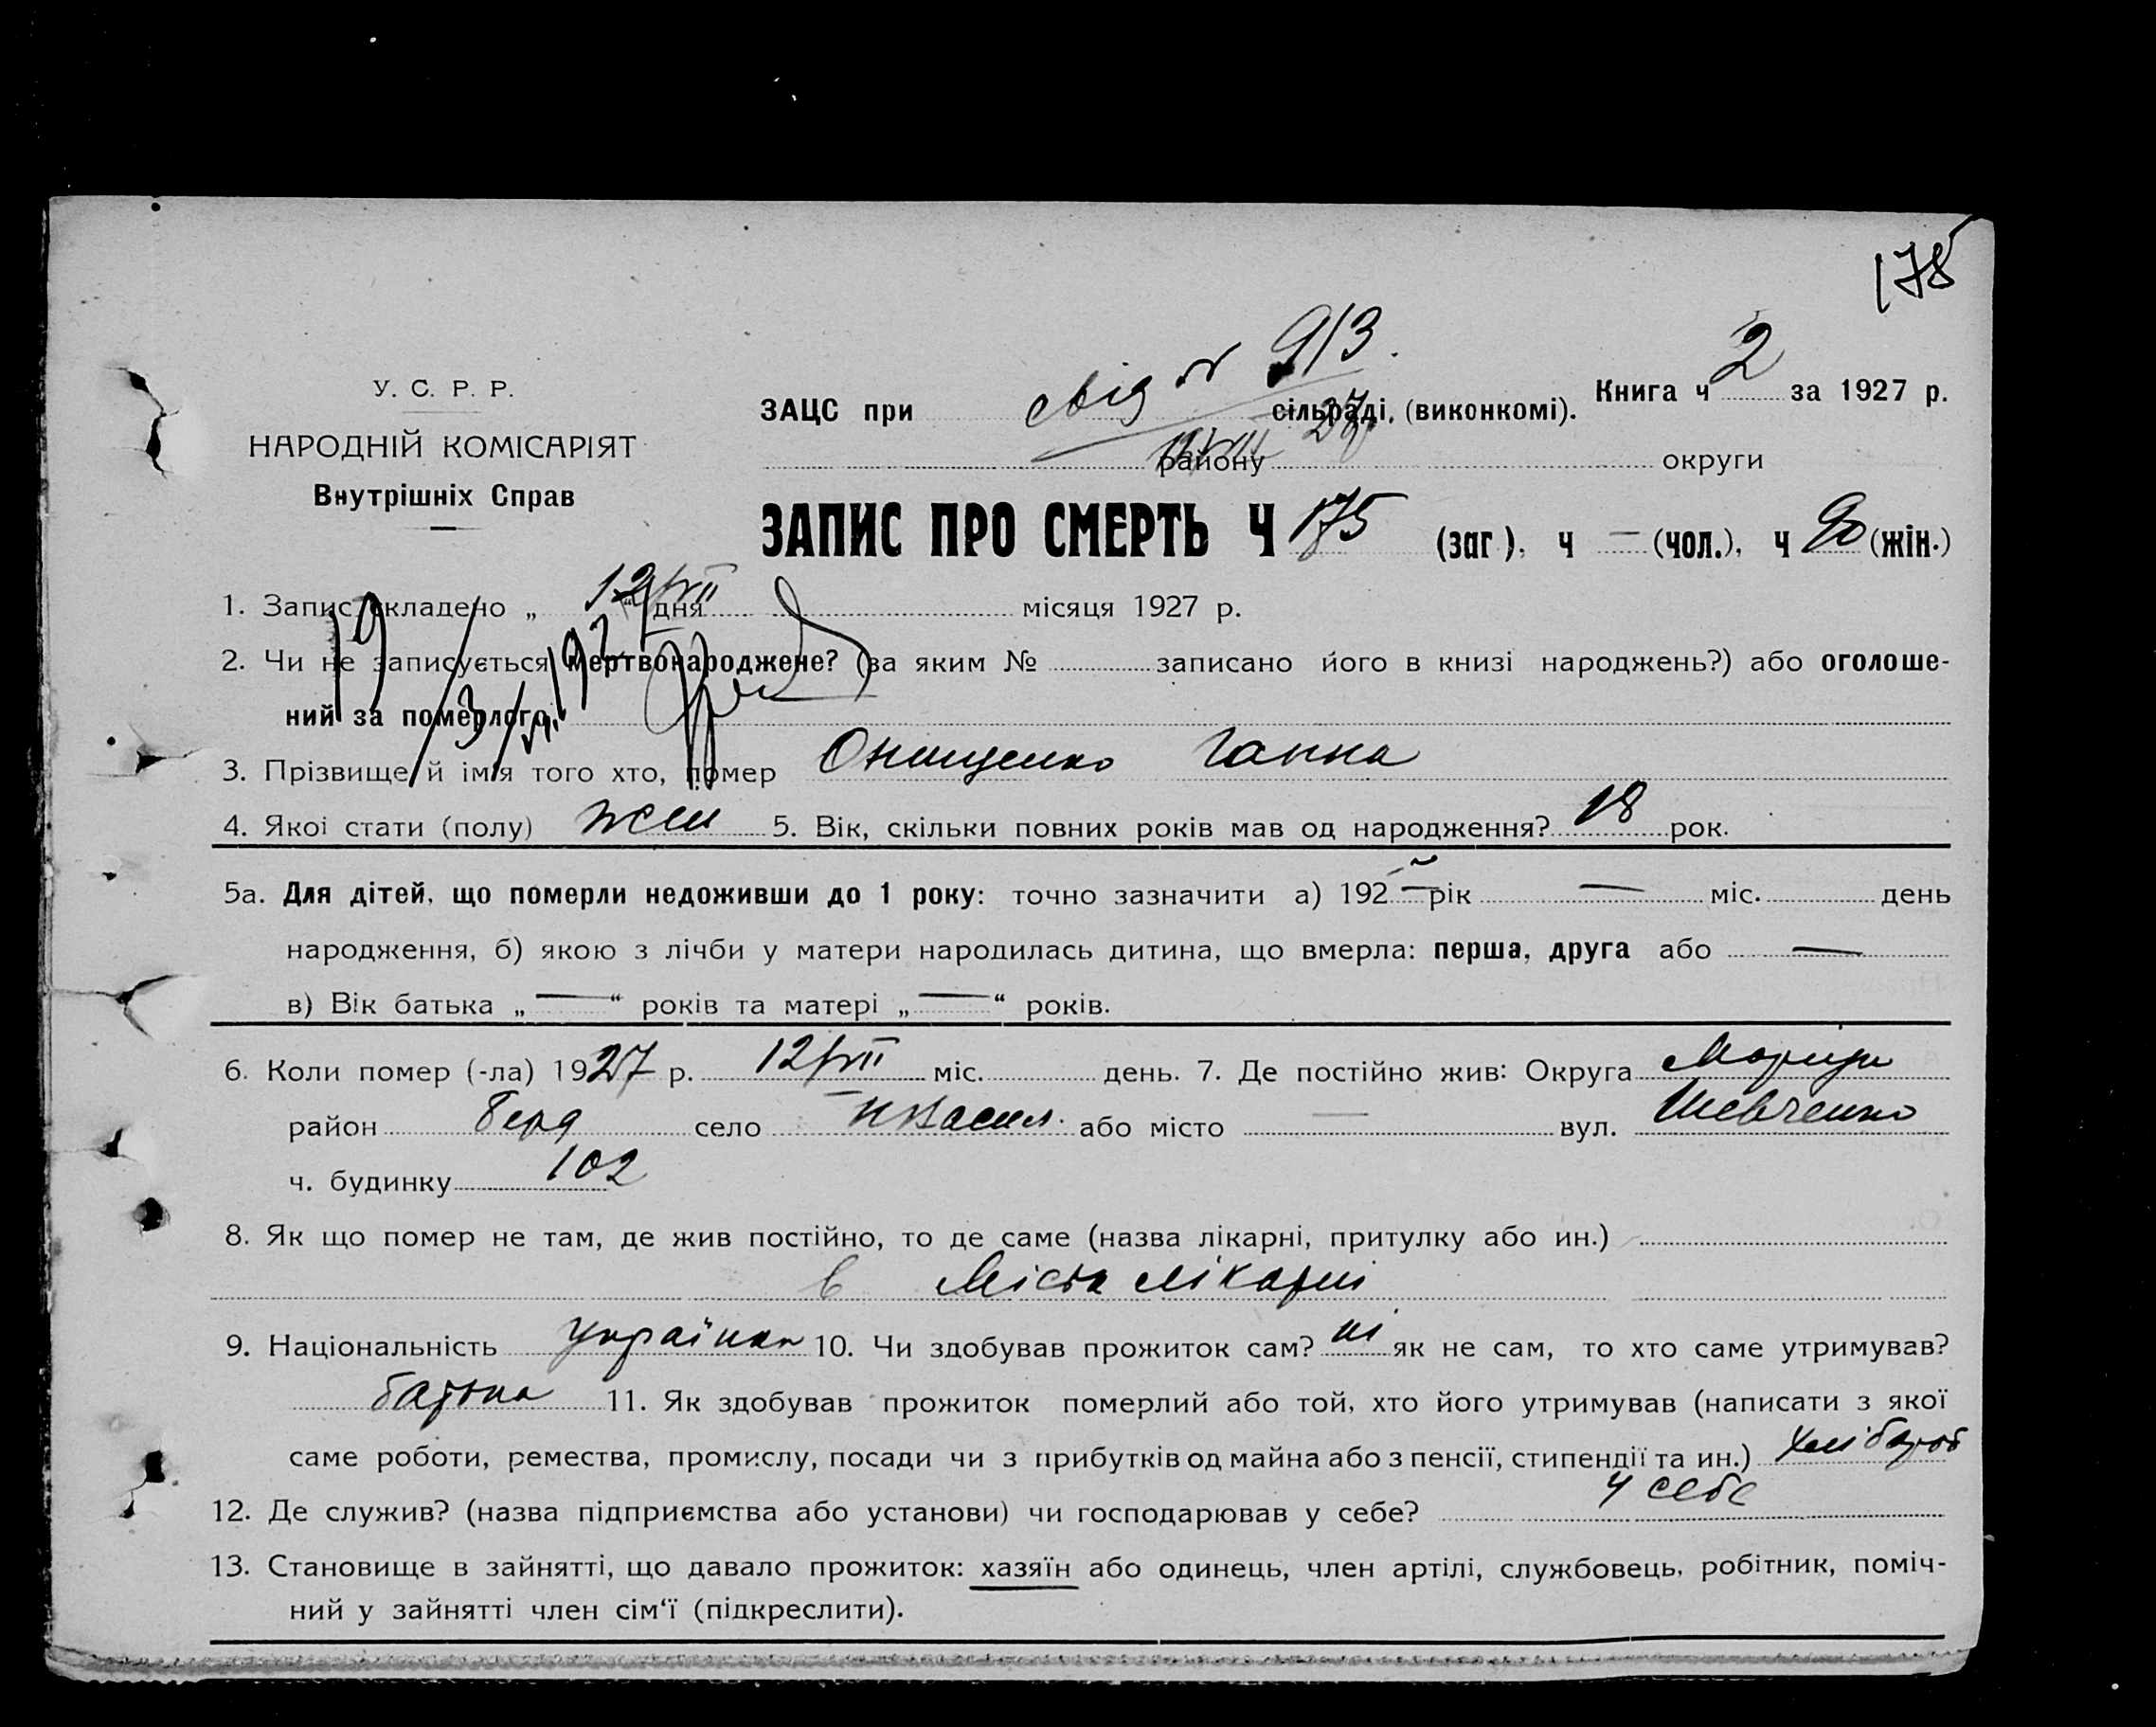 178
У. С. Р. Р.
НАРОДНІЙ КОМІСАРІЯТ
Внутрішніх Справ
свід № 913
27
ЗАЦС при сільраді, (виконкомі). Книга ч 2 за 1927 р.
району округи
ЗАПИС ПРО СМЕРТЬ Ч 175 (заг.), ч — (чол.), ч 90 (жін.)
1. Запис складено „ 12/VII “ дня місяця 1927 р.
2. Чи не записується мертвонароджене? (за яким № записано його в книзі народжень?) або оголоше-
ний за померлого,
3. Прізвище й імія того хто, помер Онищенко Ганна
4. Якої стати (полу) жен 5. Вік, скільки повних років мав од народження? 18 рок.
5а. Для дітей, що померли недоживши до 1 року: точно зазначити а) 192 — рік — міс. день
народження, б) якою з лічби у матери народилась дитина, що вмерла: перша, друга або —
в) Вік батька „ — “ років та матері „ — “ років.
6. Коли помер (-ла) 1927 р. 12/VII міс. день. 7. Де постійно жив: Округа Маріуп
район Берд село Н Васил. або місто — вул. Шевченко
ч. будинку 102
8. Як що помер не там, де жив постійно, то де саме (назва лікарні, притулку або ин.)
в Міста лікарні
9. Національність українка 10. Чи здобував прожиток сам? ні як не сам, то хто саме утримував?
батько 11. Як здобував прожиток померлий або той, хто його утримував (написати з якої
саме роботи, ремества, промислу, посади чи з прибутків од майна або з пенсії, стипендії та ин.) хлібороб
12. Де служив? (назва підприємства або установи) чи господарював у себе? у себе
13. Становище в зайнятті, що давало прожиток: хазяїн або одинець, член артілі, службовець, робітник, поміч-
ний у зайнятті член сім‘ї (підкреслити).